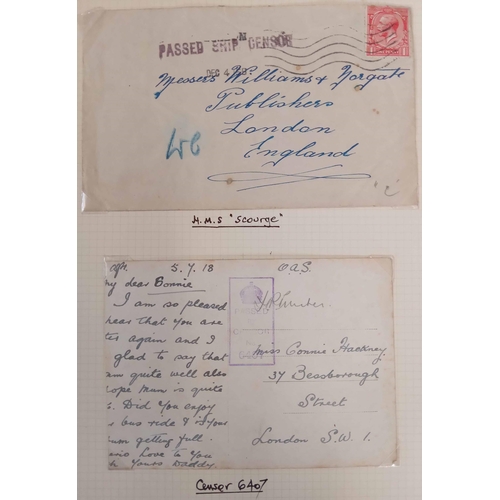 PASSED SHIP CENSOR
DEC 4
Messers Williams & Norgate
Publishers
London
England
WC
H.M.S "Scourge"
5.7.18 O.A.S.
my dear Connie
I am so pleased
hear that you are
again and I
glad to say that
am quite well also
hope Mum is quite
Did you enjoy
bus ride & is your
Mum getting full.
Love to you
Yours Daddy
CENSOR
6407
Miss Connie Hackney
37 Bessborough
Street
London S.W.1.
Censor 6407